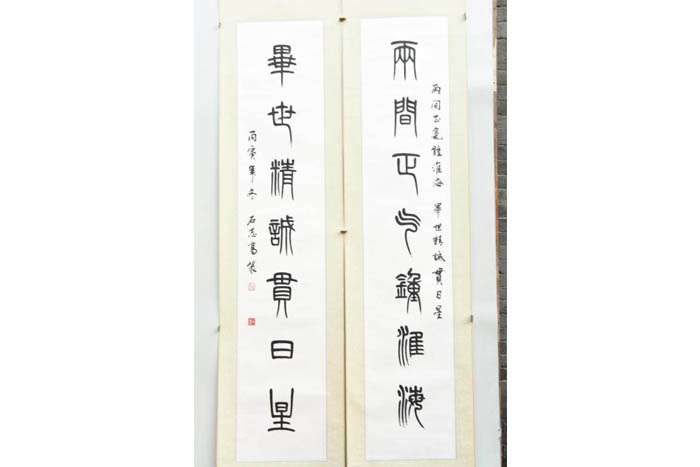 兩間正气鍾淮海
两间正气鍾淮海 畢世精誠貫日星
畢世精誠貫日星
丙寅年冬 石志高篆